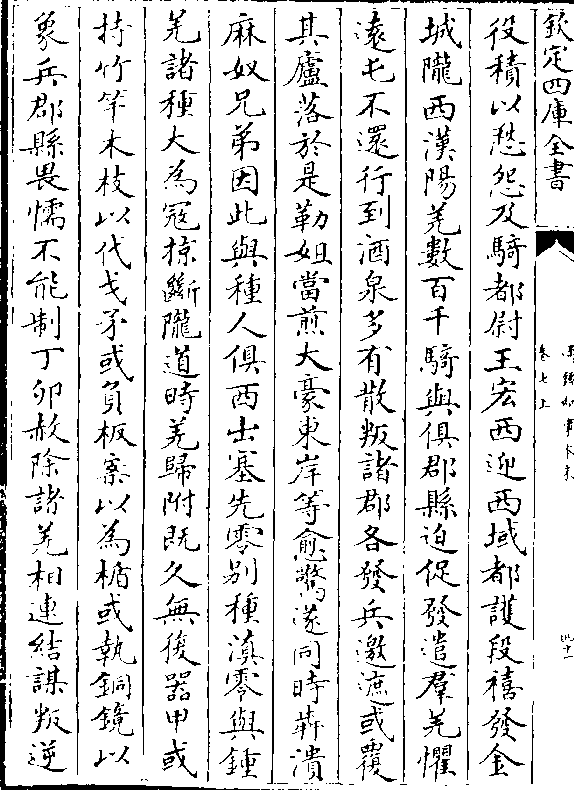 欽定四庫全書
卷七上
役積以愁怨及騎都尉王宏西迎西域都護段禧發金
城隴西漢陽羌數百千騎與俱郡縣迫促發遣羣羌懼
遠屯不還行到酒泉多有散叛諸郡各發兵邀遮或覆
其廬落於是勒姐當煎大豪東岸等愈驚遂同時犇潰
麻奴兄弟因此與種人俱西出塞先零别種滇零與鍾
羌諸種大為冦掠斷隴道時羌歸附既久無復器甲或
持竹竿木枝以代戈矛或負板案以為楯或執銅鏡以
象兵郡縣畏懦不能制丁卯赦除諸羌相連結謀叛逆